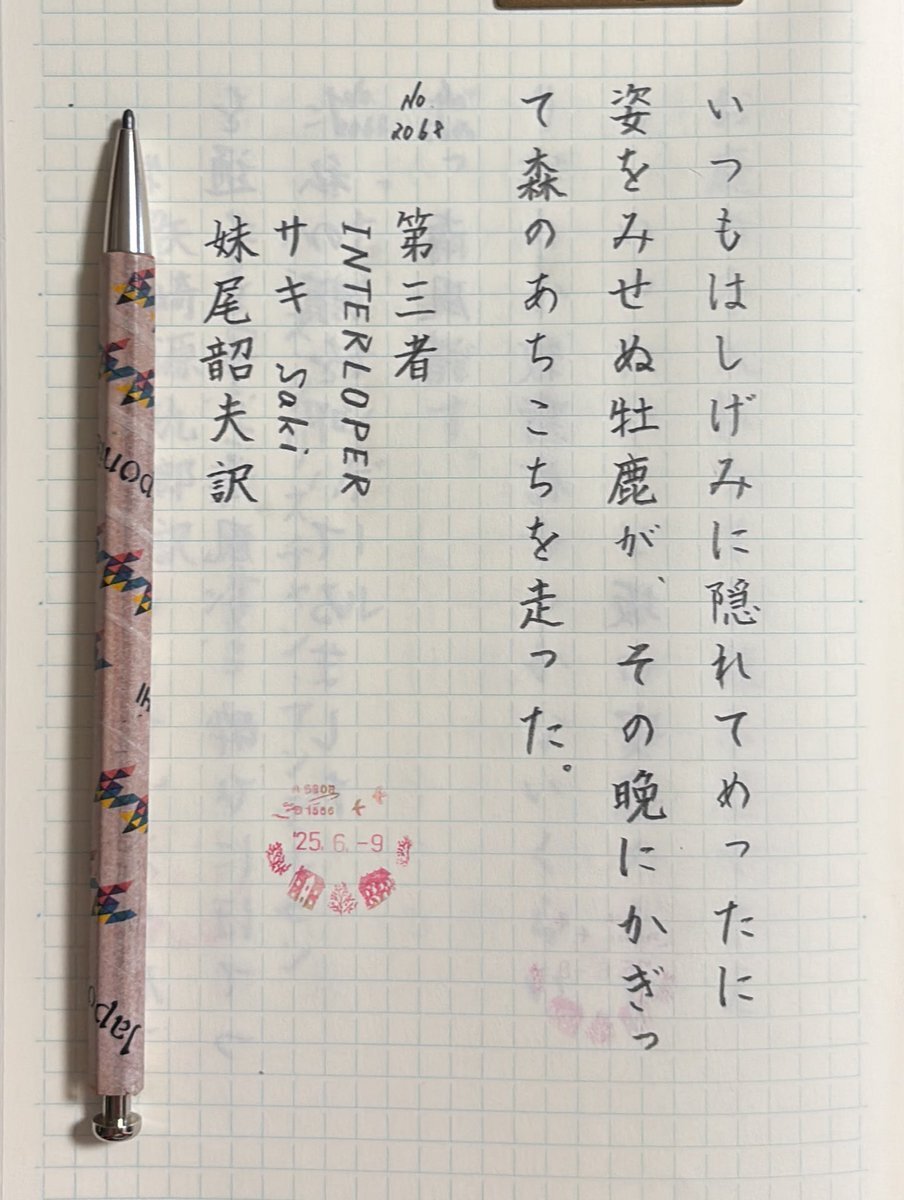 いつもはしげみに隠れてめったに
姿をみせぬ牡鹿が、その晩にかぎっ
て森のあちこちを走った。
No.
2068
第三者
INTERLOPER
サキ Saki
妹尾韶夫訳
'25.6.-9